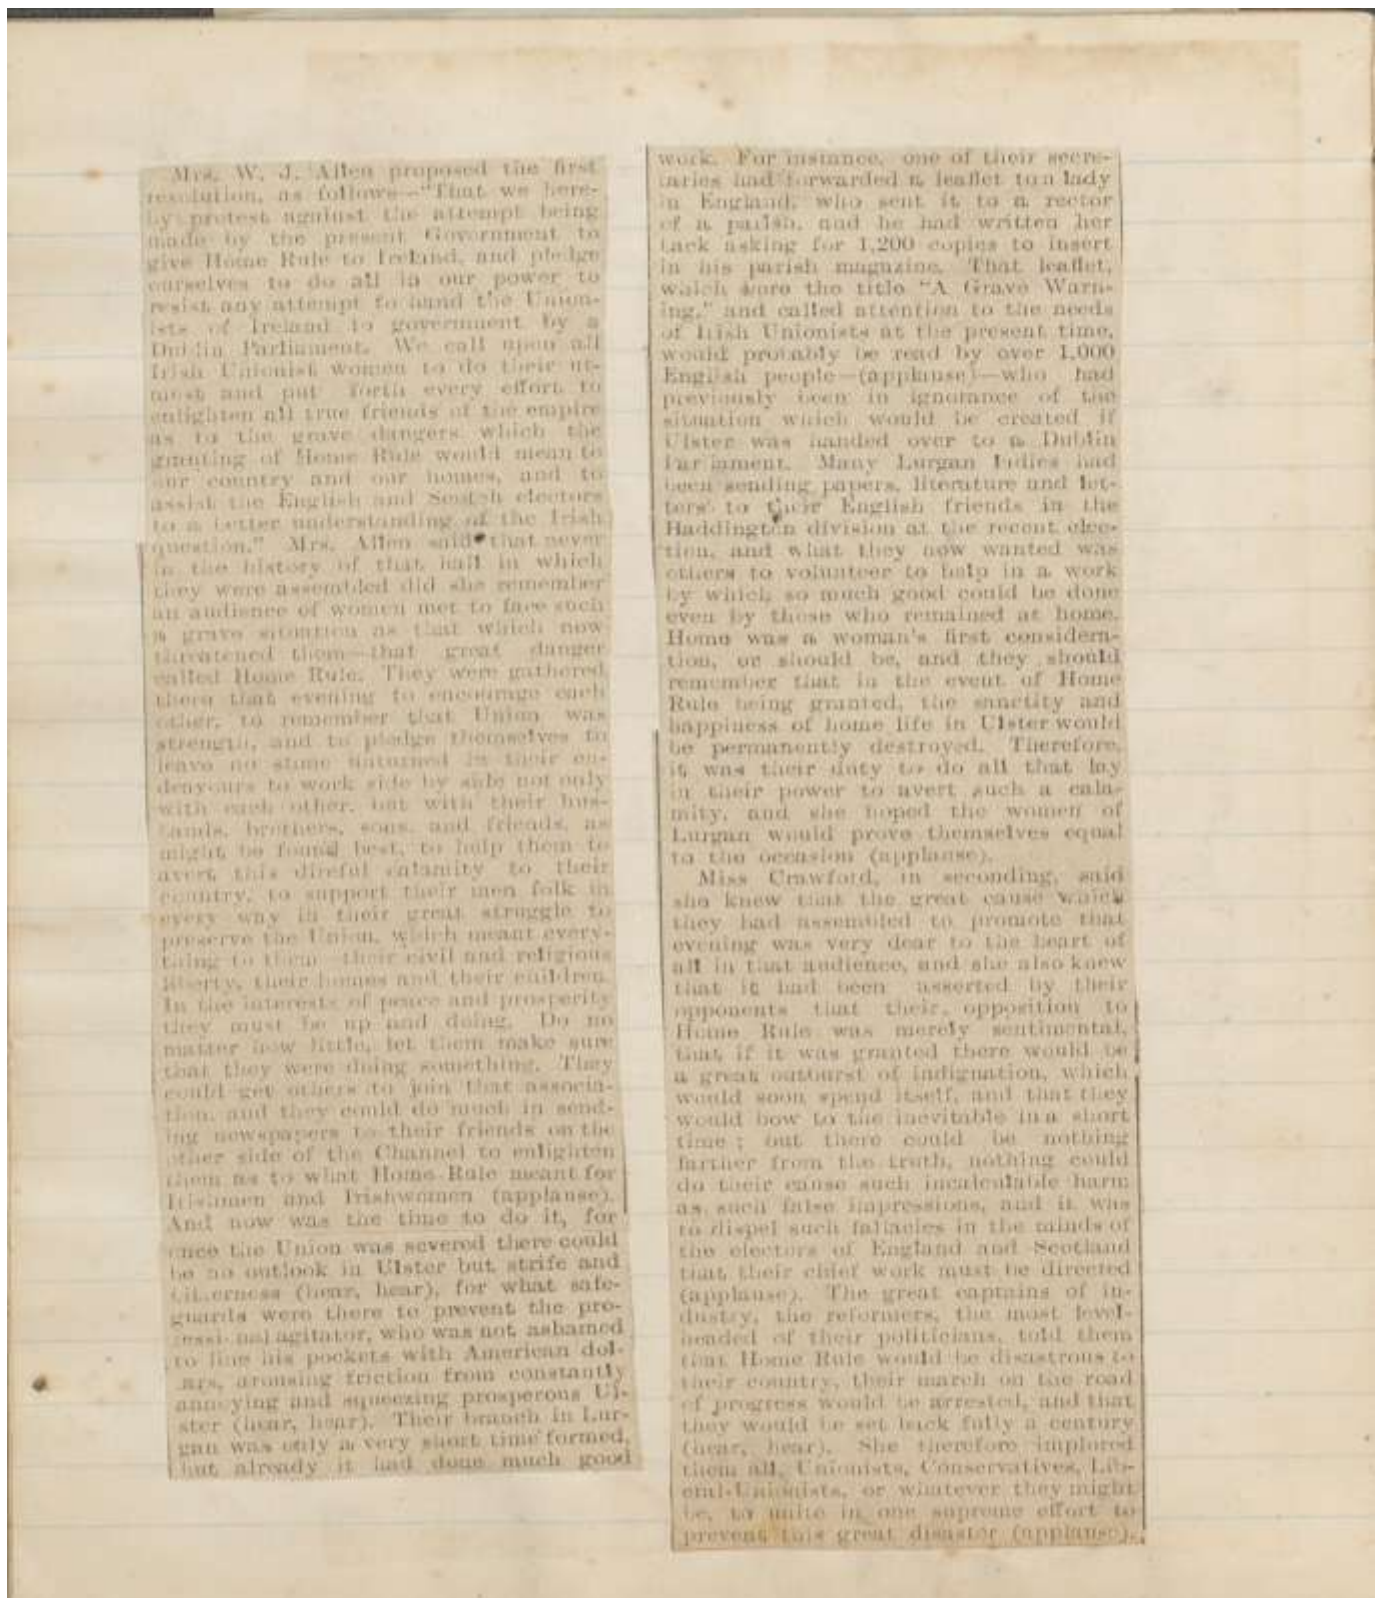 Mrs. W. J. Allen proposed the first
resolution, as follows—"That we here-
by protest against the attempt being
made by the present Government to
give Home Rule to Ireland, and pledge
ourselves to do all in our power to
resist any attempt to hand the Union-
ists of Ireland to government by a
Dublin Parliament. We call upon all
Irish Unionist women to do their ut-
most and put forth every effort to
enlighten all true friends of the empire
as to the grave dangers which the
granting of Home Rule would mean to
our country and our homes, and to
assist the English and Scotch electors
to a better understanding of the Irish
question." Mrs. Allen said that never
in the history of that hall in which
they were assembled did she remember
an audience of women met to face such
a grave situation as that which now
threatened them—that great danger
called Home Rule. They were gathered
there that evening to encourage each
other, to remember that Union was
strength, and to pledge themselves to
leave no stone unturned in their en-
deavours to work side by side not only
with each other, but with their hus-
bands, brothers, sons, and friends, as
might be found best, to help them to
avert this direful calamity to their
country, to support their men folk in
every way in their great struggle to
preserve the Union, which meant every-
thing to them—their civil and religious
liberty, their homes and their children.
In the interests of peace and prosperity
they must be up and doing. Do no
matter how little, let them make sure
that they were doing something. They
could get others to join that associa-
tion, and they could do much in send-
ing newspapers to their friends on the
other side of the Channel to enlighten
them as to what Home Rule meant for
Irishmen and Irishwomen (applause).
And now was the time to do it, for
once the Union was severed there could
be no outlook in Ulster but strife and
bitterness (hear, hear), for what safe-
guards were there to prevent the pro-
fessional agitator, who was not ashamed
to line his pockets with American dol-
lars, arousing friction from constantly
annoying and squeezing prosperous Ul-
ster (hear, hear). Their branch in Lur-
gan was only a very short time formed,
but already it had done much good
work. For instance, one of their secre-
taries had forwarded a leaflet to a lady
in England, who sent it to a rector
of a parish, and he had written her
back asking for 1,200 copies to insert
in his parish magazine. That leaflet,
which wore the title "A Grave Warn-
ing," and called attention to the needs
of Irish Unionists at the present time,
would probably be read by over 1,000
English people—(applause)—who had
previously been in ignorance of the
situation which would be created if
Ulster was handed over to a Dublin
Parliament. Many Lurgan ladies had
been sending papers, literature and let-
ters to their English friends in the
Haddington division at the recent elec-
tion, and what they now wanted was
others to volunteer to help in a work
by which so much good could be done
even by those who remained at home.
Home was a woman's first considera-
tion, or should be, and they should
remember that in the event of Home
Rule being granted, the sanctity and
happiness of home life in Ulster would
be permanently destroyed. Therefore,
it was their duty to do all that lay
in their power to avert such a cala-
mity, and she hoped the women of
Lurgan would prove themselves equal
to the occasion (applause).
Miss Crawford, in seconding, said
she knew that the great cause which
they had assembled to promote that
evening was very dear to the heart of
all in that audience, and she also knew
that it had been asserted by their
opponents that their opposition to
Home Rule was merely sentimental,
that if it was granted there would be
a great outburst of indignation, which
would soon spend itself, and that they
would bow to the inevitable in a short
time; but there could be nothing
farther from the truth, nothing could
do their cause such incalculable harm
as such false impressions, and it was
to dispel such fallacies in the minds of
the electors of England and Scotland
that their chief work must be directed
(applause). The great captains of in-
dustry, the reformers, the most level-
headed of their politicians, told them
that Home Rule would be disastrous to
their country, their march on the road
of progress would be arrested, and that
they would be set back fully a century
(hear, hear). She therefore implored
them all, Unionists, Conservatives, Lib-
eral-Unionists, or whatever they might
be, to unite in one supreme effort to
prevent this great disaster (applause).